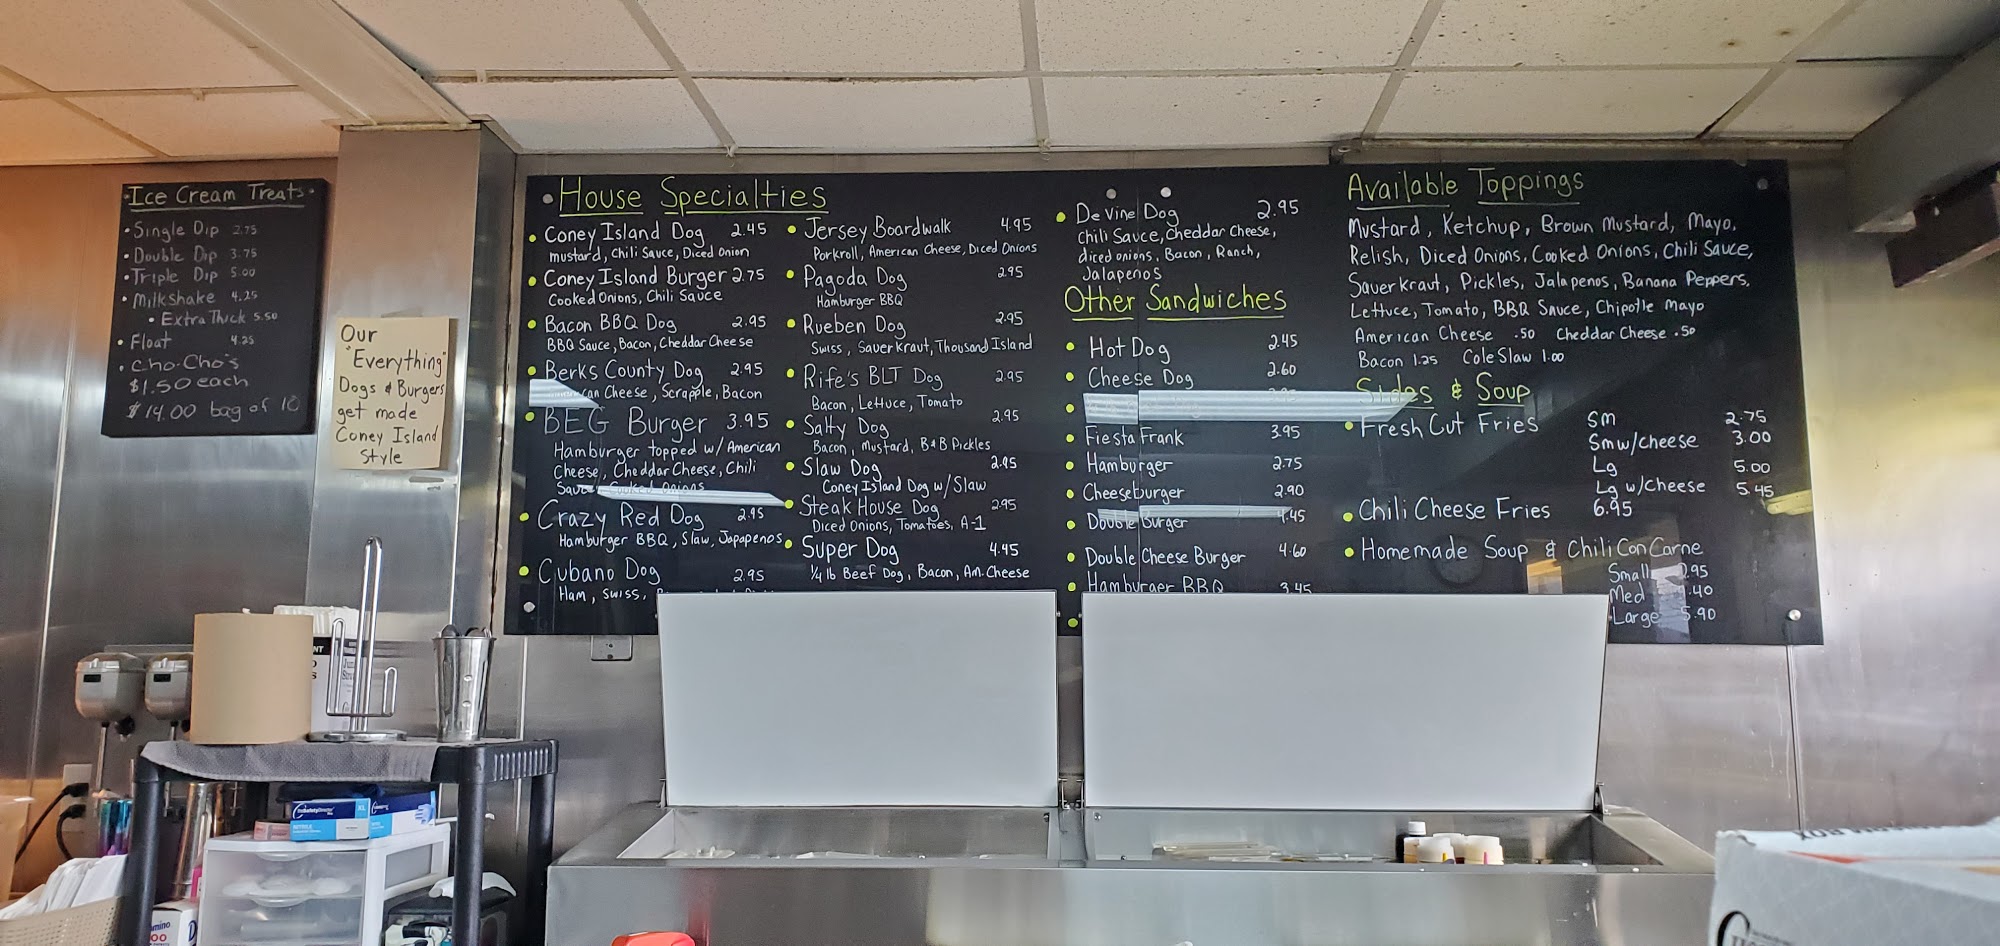 Ice Cream Treats
Single Dip 2.75
Double Dip 3.75
Triple Dip 5.00
Milkshake 4.25
Extra Thick 5.50
Float 4.25
Cho-Cho's
$1.50 each
$14.00 bag of 10
Our
"Everything"
Dogs & Burgers
get made
Coney Island
Style
House Specialties
Coney Island Dog 2.45
mustard, Chili Sauce, Diced Onion
Coney Island Burger 2.75
Cooked Onions, Chili Sauce
Bacon BBQ Dog 2.95
BBQ Sauce, Bacon, Cheddar Cheese
Berks County Dog 2.95
Cheese, Scrapple, Bacon
BEG Burger 3.95
Hamburger topped w/ American
Cheese, Cheddar Cheese, Chili
Sauce, Cooked Onions
Crazy Red Dog 2.95
Hamburger BBQ, Slaw, Japapenos
Cubano Dog 2.95
Ham, Swiss,
Jersey Boardwalk 4.95
Porkroll, American Cheese, Diced Onions
Pagoda Dog 2.95
Hamburger BBQ
Rueben Dog 2.95
Swiss, Sauerkraut, Thousand Island
Rife's BLT Dog 2.95
Bacon, Lettuce, Tomato
Salty Dog 2.95
Bacon, Mustard, B&B Pickles
Slaw Dog 2.95
Coney Island Dog w/ Slaw
Steak House Dog 2.95
Diced Onions, Tomatoes, A-1
Super Dog 4.45
1/4 lb Beef Dog, Bacon, Am. Cheese
De Vine Dog 2.95
Chili Sauce, Cheddar Cheese,
diced onions, Bacon, Ranch,
Jalapenos
Other Sandwiches
Hot Dog 2.45
Cheese Dog 2.60
Fiesta Frank 3.95
Hamburger 2.75
Cheeseburger 2.90
Double Burger 4.45
Double Cheese Burger 4.60
Hamburger BBQ 3.45
Available Toppings
Mustard, Ketchup, Brown Mustard, Mayo,
Relish, Diced Onions, Cooked Onions, Chili Sauce,
Sauerkraut, Pickles, Jalapenos, Banana Peppers,
Lettuce, Tomato, BBQ Sauce, Chipotle Mayo
American Cheese .50 Cheddar Cheese .50
Bacon 1.25 Cole Slaw 1.00
Sides & Soup
Fresh Cut Fries Sm 2.75
Sm w/cheese 3.00
Lg 5.00
Lg w/cheese 5.45
Chili Cheese Fries 6.95
Homemade Soup & Chili Con Carne
Small .95
Med .40
Large 5.90